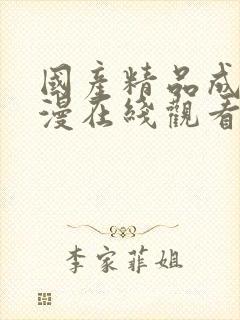 國產精品成
漫在綫觀看
李家菲姐